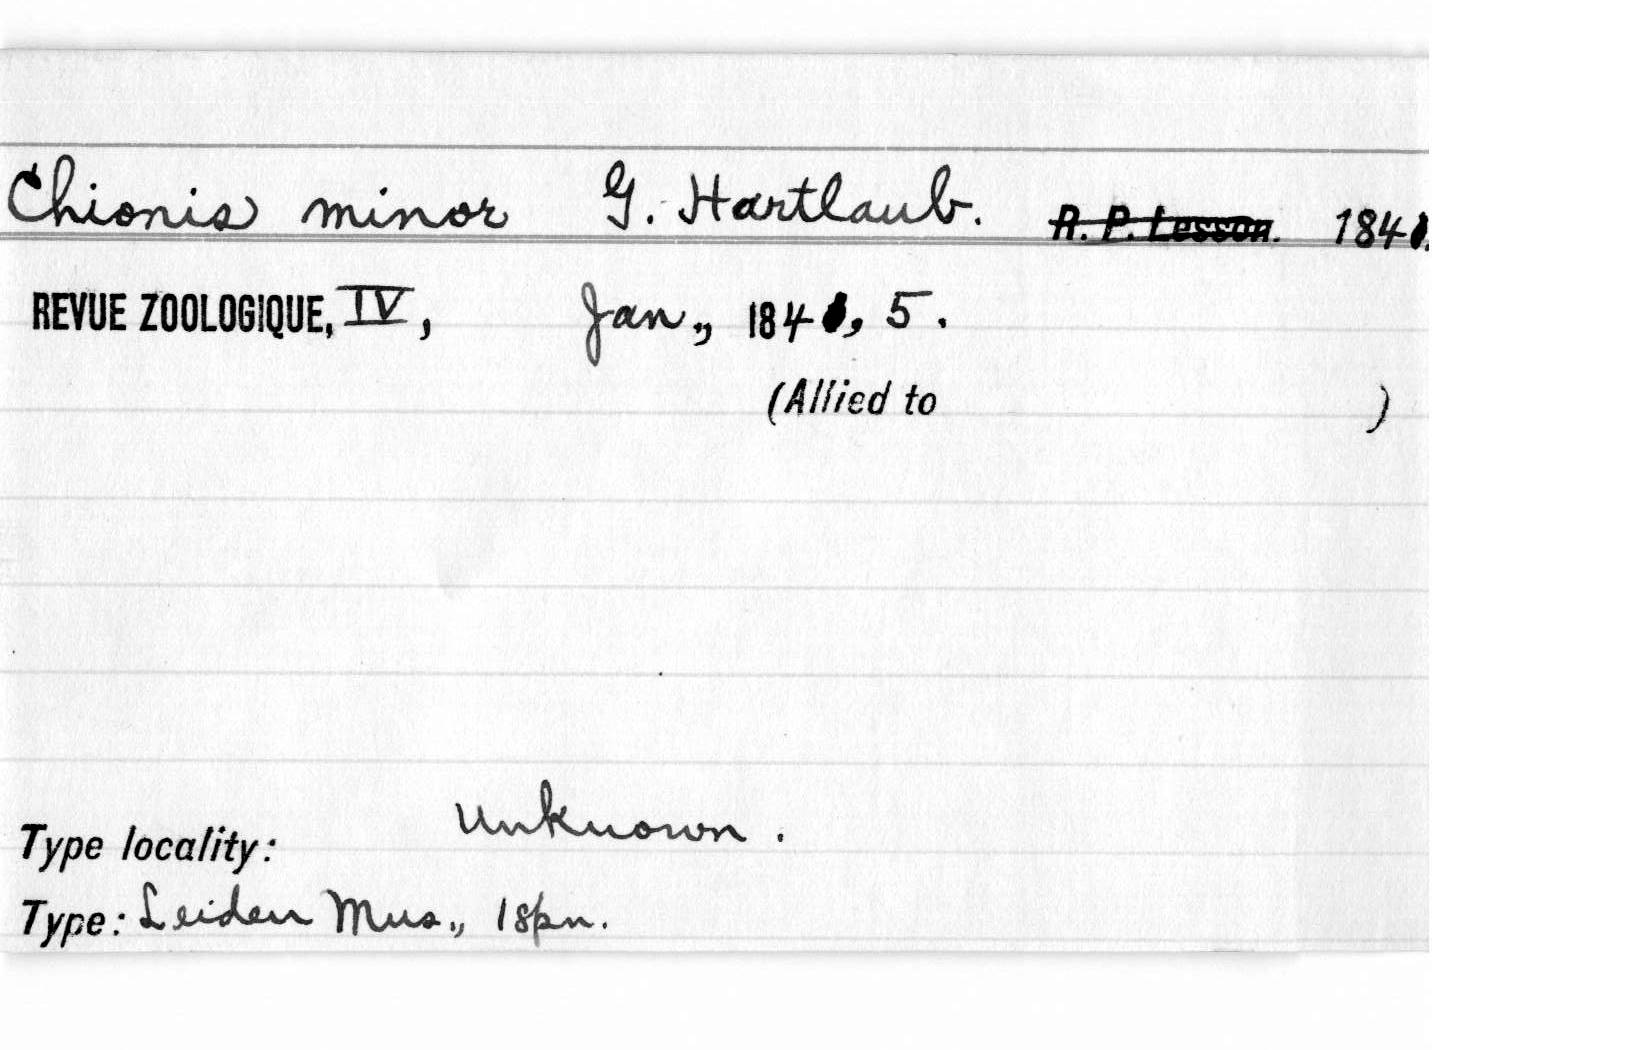 Chionis minor G. Hartlaub. R. P. Lesson. 1841.
REVUE ZOOLOGIQUE, IV, Jan., 1841, 5.
(Allied to )
Type locality: Unknown.
Type: Leiden Mus., 1 spn.